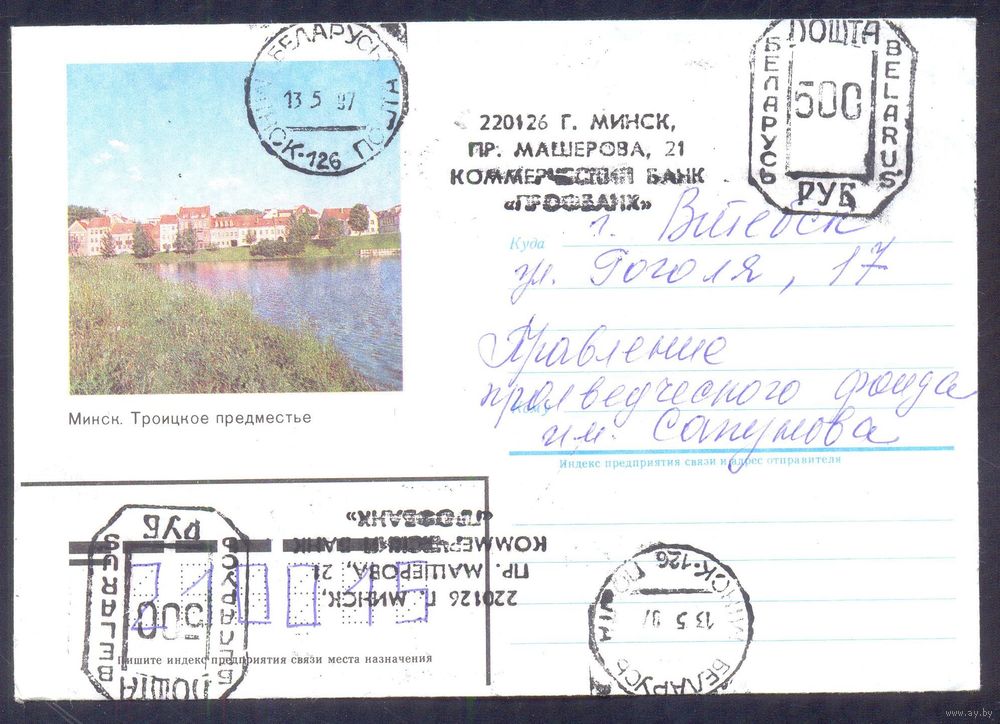 БЕЛАРУСЬ
13 5 97
МИНСК-126 ПОШТА
ПОШТА
БЕЛАРУСЬ
500
BELARUS
РУБ
220126 Г. МИНСК,
ПР. МАШЕРОВА, 21
КОММЕРЧЕСКИЙ БАНК
«ПРОФБАНК»
Куда
г. Витебск
ул. Гоголя, 17
Правление
Кому
фонда
им. Сапунова
Индекс предприятия связи и адрес отправителя
Минск. Троицкое предместье
220126 Г. МИНСК,
ПР. МАШЕРОВА, 21
КОММЕРЧЕСКИЙ БАНК
«ПРОФБАНК»
ПОШТА
БЕЛАРУСЬ
500
BELARUS
РУБ
Пишите индекс предприятия связи места назначения
МИНСК-126 ПОШТА
13 5 97
БЕЛАРУСЬ
www.ay.by